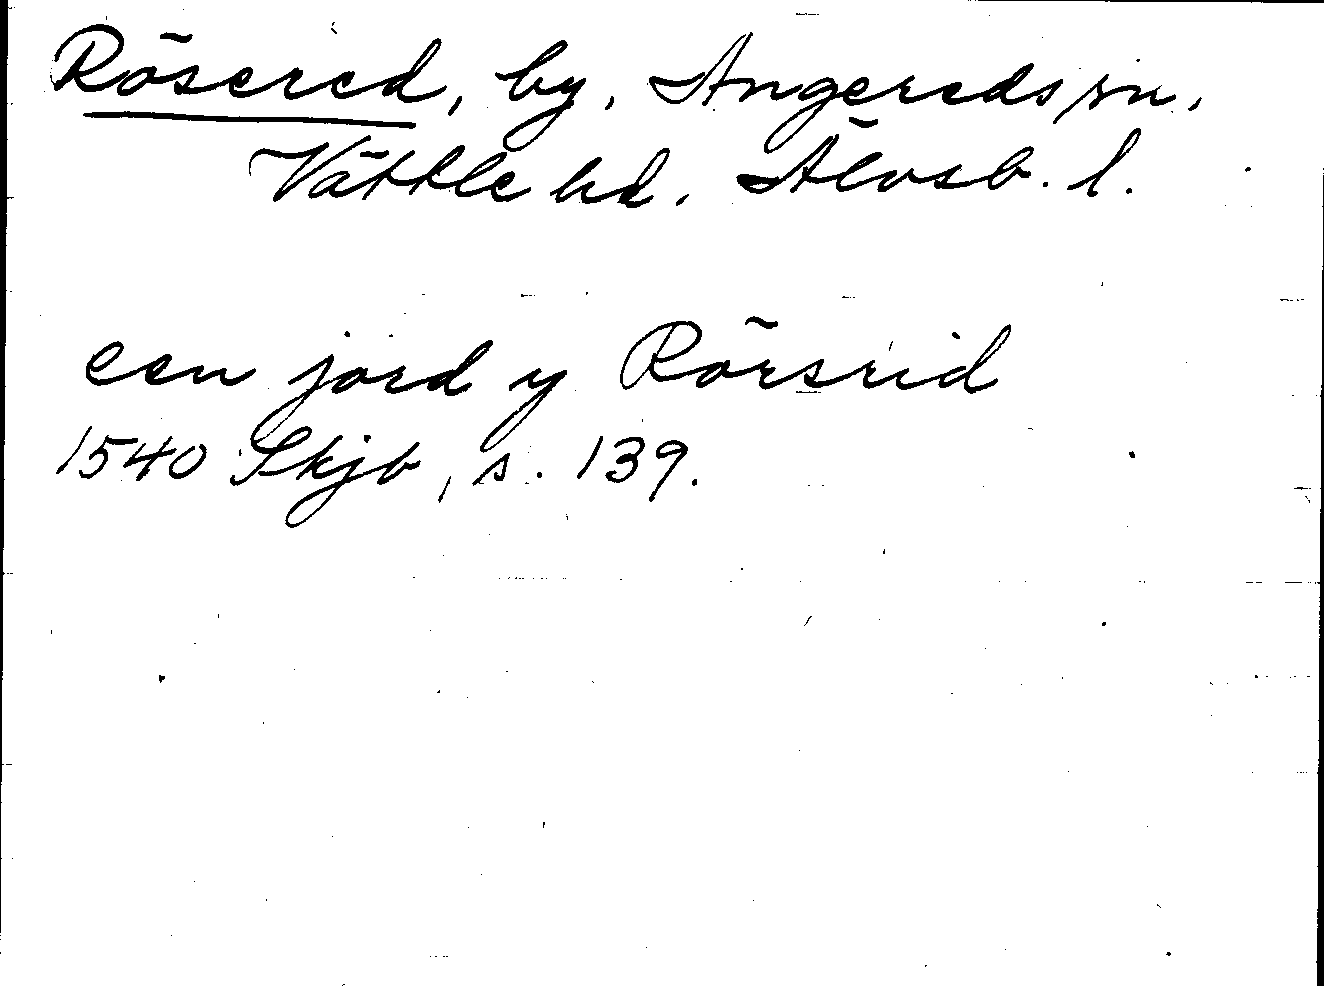 Rösered, by, Angereds sn.
Vättle hd. Älvsb. l.
een jord y Rörsrid
1540 Skjb, s. 139.